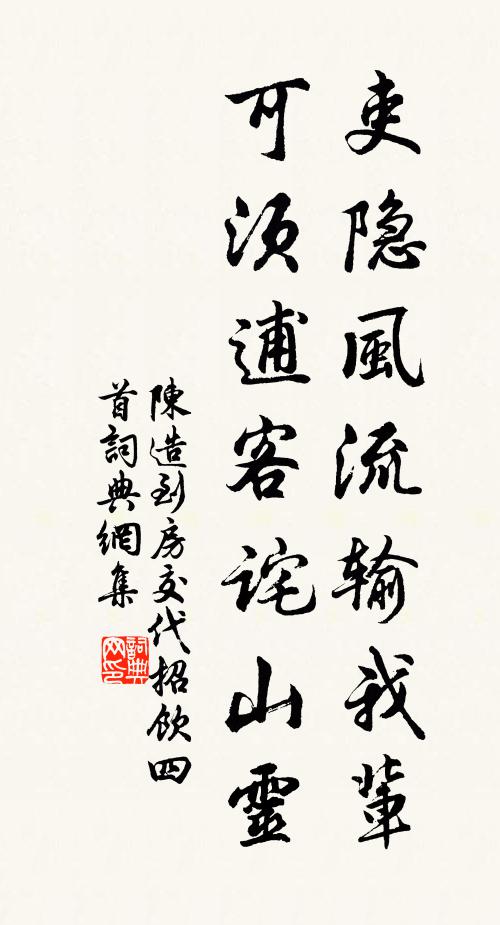 吏隐風流输我輩
可須逋客詫山靈
陳造到房交代招飲四
首詞典網集
詞典
网印